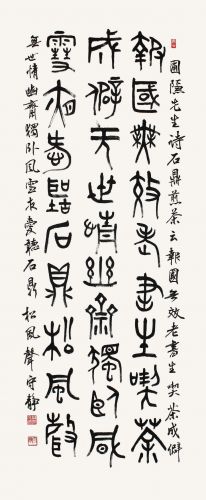 圃隱先生詩石鼎煎茶云報國無效老書生喫茶成僻
報國無效老書生喫茶
成僻无世情幽齋獨卧風
雪夜愛聽石鼎松風聲
無世情幽齋獨卧風雪夜愛聽石鼎松風聲守靜